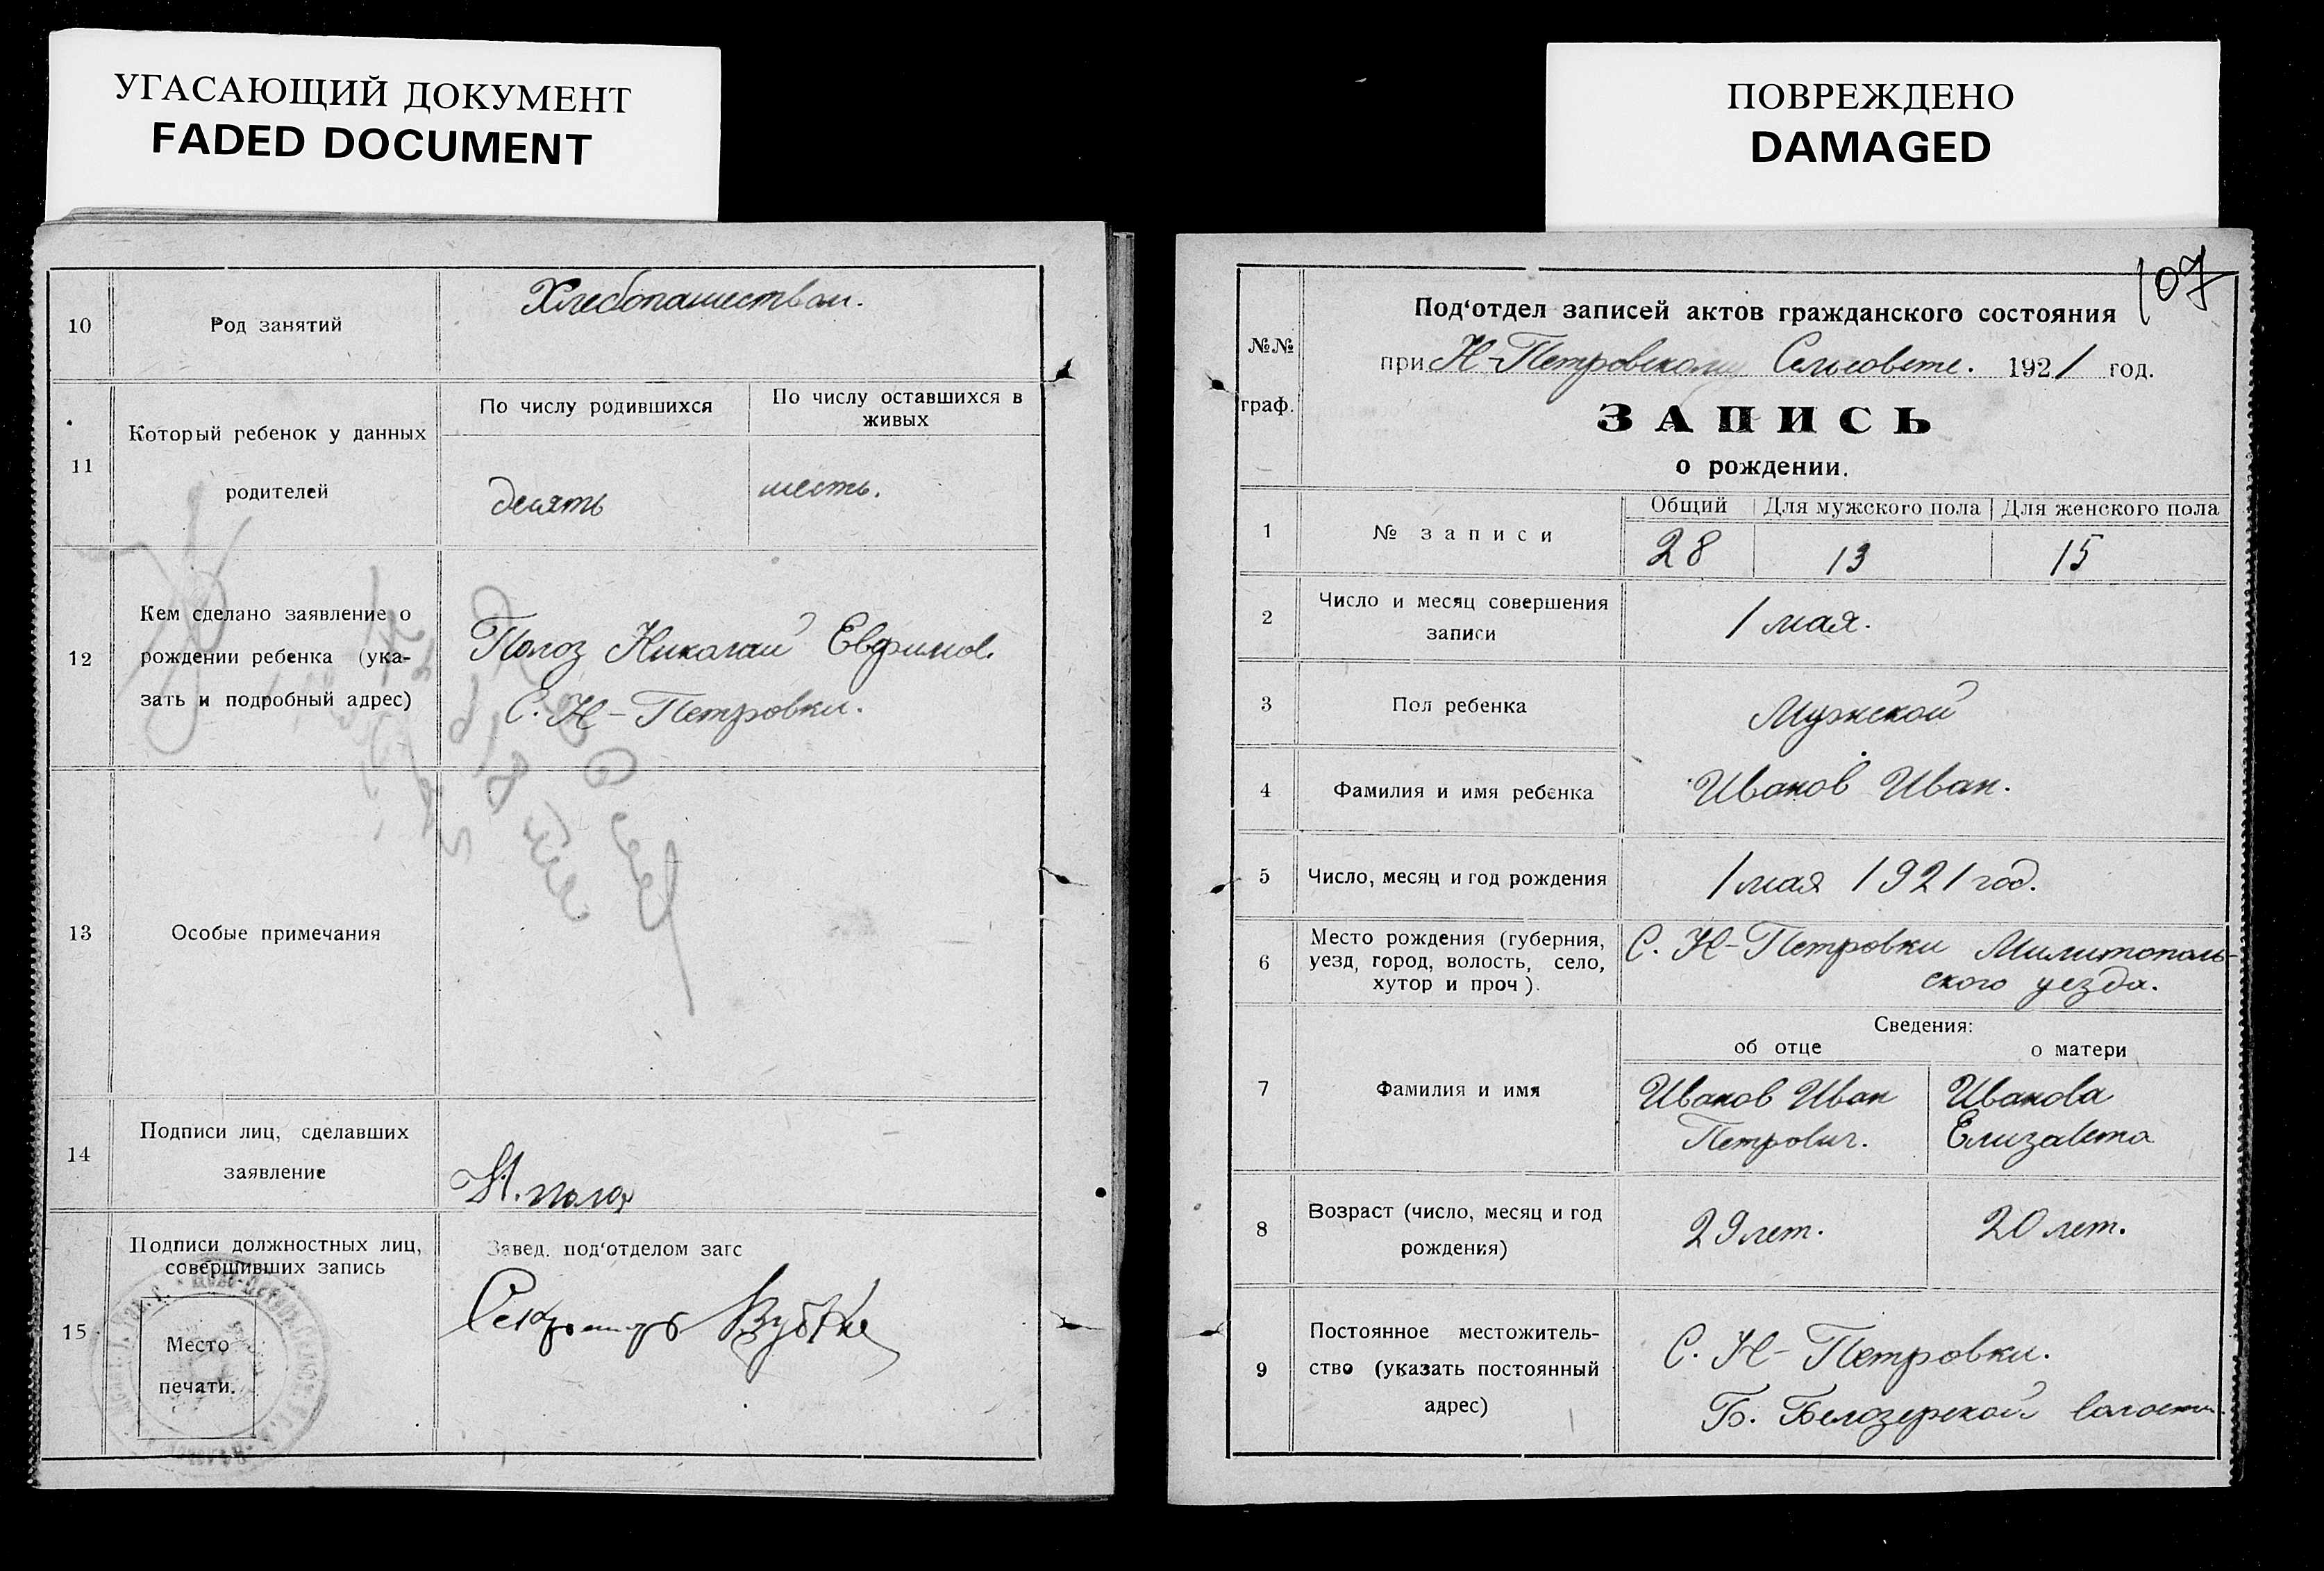 УГАСАЮЩИЙ ДОКУМЕНТ
FADED DOCUMENT
10
Род занятий
Хлебопашеством.
11
Который ребенок у данных
родителей
По числу родившихся
По числу оставшихся в
живых
десять
шесть.
12
Кем сделано заявление о
рождении ребенка (ука-
зать и подробный адрес)
Полоз Николай Евфимов.
С. Н-Петровки.
13
Особые примечания
14
Подписи лиц, сделавших
заявление
Н. полоз
15
Подписи должностных лиц,
совершивших запись
Место
печати.
Завед. под‘отделом загс
Секретарь
ПОВРЕЖДЕНО
DAMAGED
107
№№
граф.
Под‘отдел записей актов гражданского состояния
при Н-Петровском Сельсовете. 1921 год.
ЗАПИСЬ
о рождении.
1
№ записи
Общий Для мужского пола Для женского пола
28 13 15
2
Число и месяц совершения
записи
1 мая.
3
Пол ребенка
Мужской
4
Фамилия и имя ребенка
Иванов Иван.
5
Число, месяц и год рождения
1 мая 1921 год.
6
Место рождения (губерния,
уезд, город, волость, село,
хутор и проч).
С. Н-Петровки Милитополь-
ского уезда.
Сведения:
об отце о матери
7
Фамилия и имя
Иванов Иван
Петрович.
Иванова
Елизавета
8
Возраст (число, месяц и год
рождения)
29 лет.
20 лет.
9
Постоянное местожитель-
ство (указать постоянный
адрес)
С. Н-Петровки.
Б. Белозерской волости